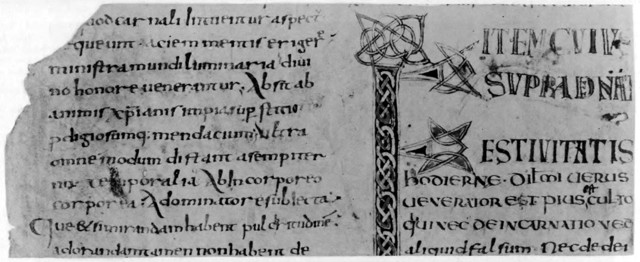 quod carnali intuentur aspect
queunt aciem mentis eriger
ministra mundi luminaria diui
no honore uenerantur. Absit ab
animis xpianis impia sup stitio
pdigiosumq. mendacium. Ultra
omne modum distant a sempiter
temporalia Ab incorporeo
corporea A dominatore subiecta
Que etsi mirandam habent pulchritudine
adorandam tamen non habent de
ITEM CUIUS
SUPRA DNI
FESTIUITATIS
hodierne. dilmi uerus
uenerator est et pius cultor
qui nec de incarnatio
aliquid falsum. Nec de dei